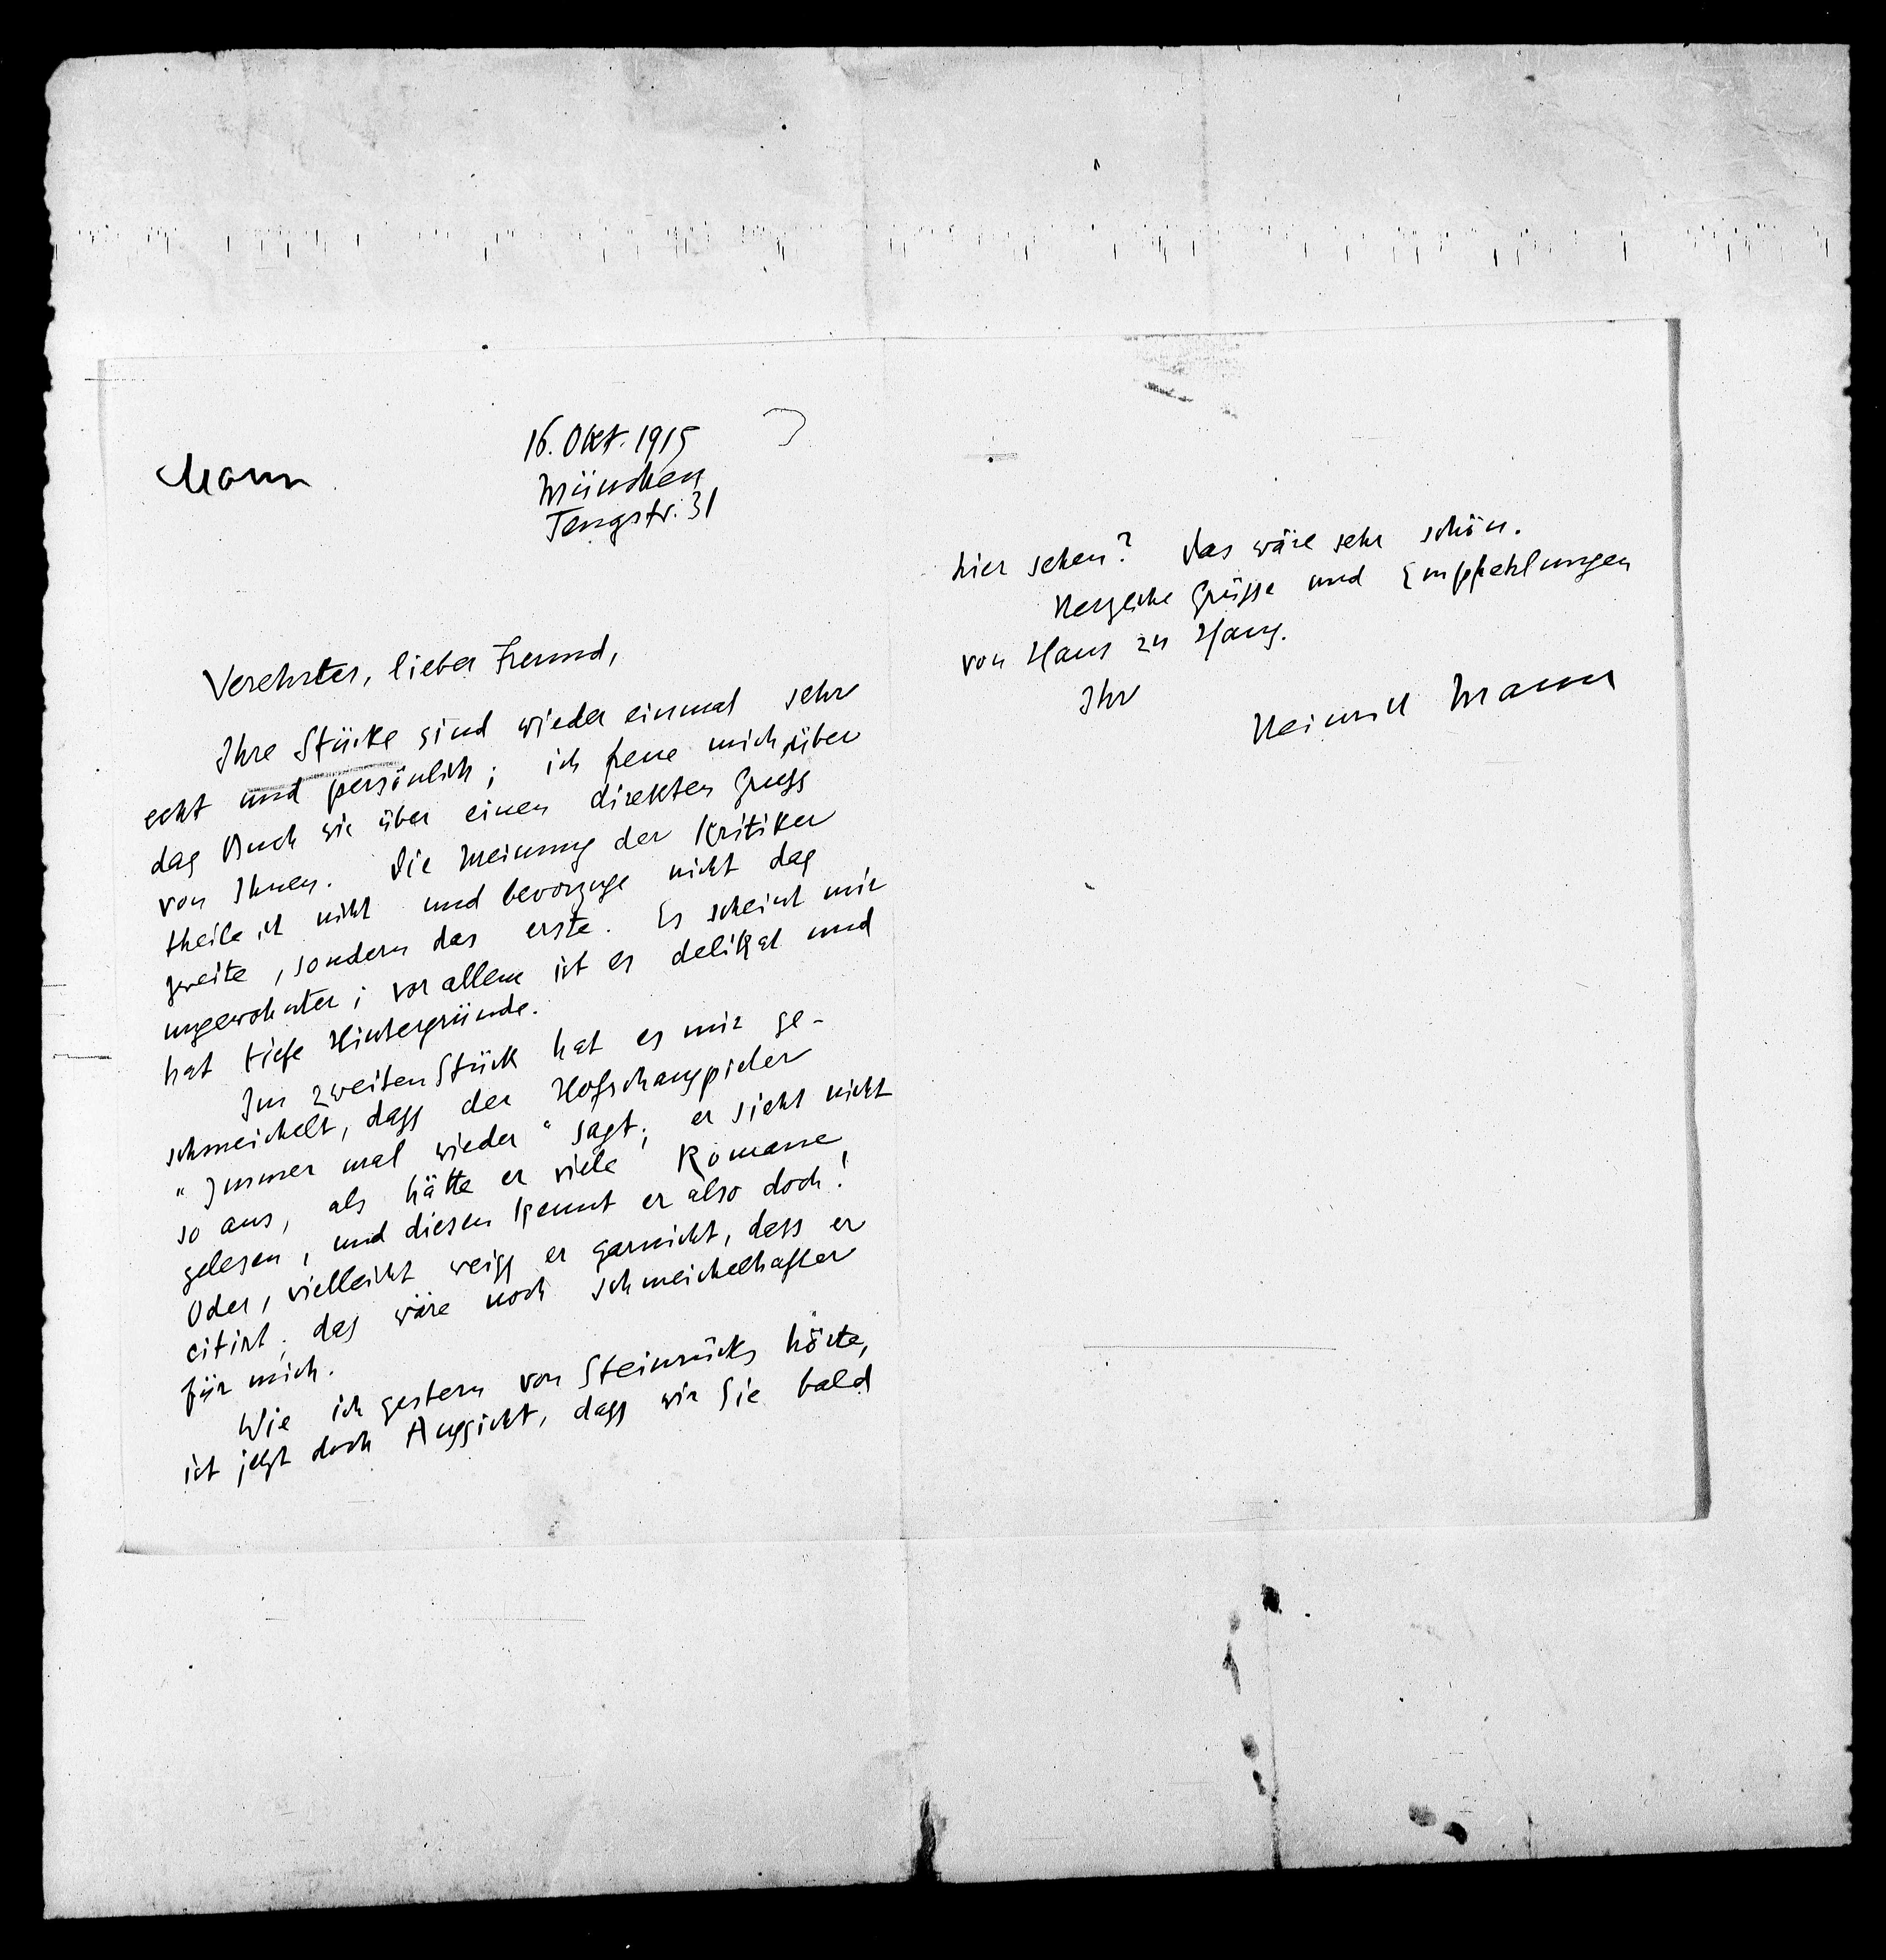 Mann
16. Okt. 1915
München
Tengstr. 31
Verehrter, lieber Freund,
Ihre Stücke sind wieder einmal sehr
echt und persönlich; ich freue mich über
das Buch wie über einen direkten Gruss
von Ihnen. Die Meinung der Kritiker
theile ich nicht und bevorzuge nicht das
zweite, sondern das erste. Es scheint mir
ungewohnter; vor allem ist es delikat und
hat tiefe Hintergründe.
Im zweiten Stück hat es mir ge-
schmeichelt, dass der Hofschauspieler
"Immer mal wieder" sagt; er sieht nicht
so aus, als hätte er viele Romane
gelesen, und diesen kennt er also doch!
Oder, vielleicht weiss er garnicht, dass er
citirt; das wäre noch schmeichelhafter
für mich.
Wie ich gestern von Steinrücks hörte,
ist jetzt doch Aussicht, dass wir Sie bald
hier sehen? Das wäre sehr schön.
Herzliche Grüsse und Empfehlungen
von Haus zu Haus.
Ihr
Heinrich Mann